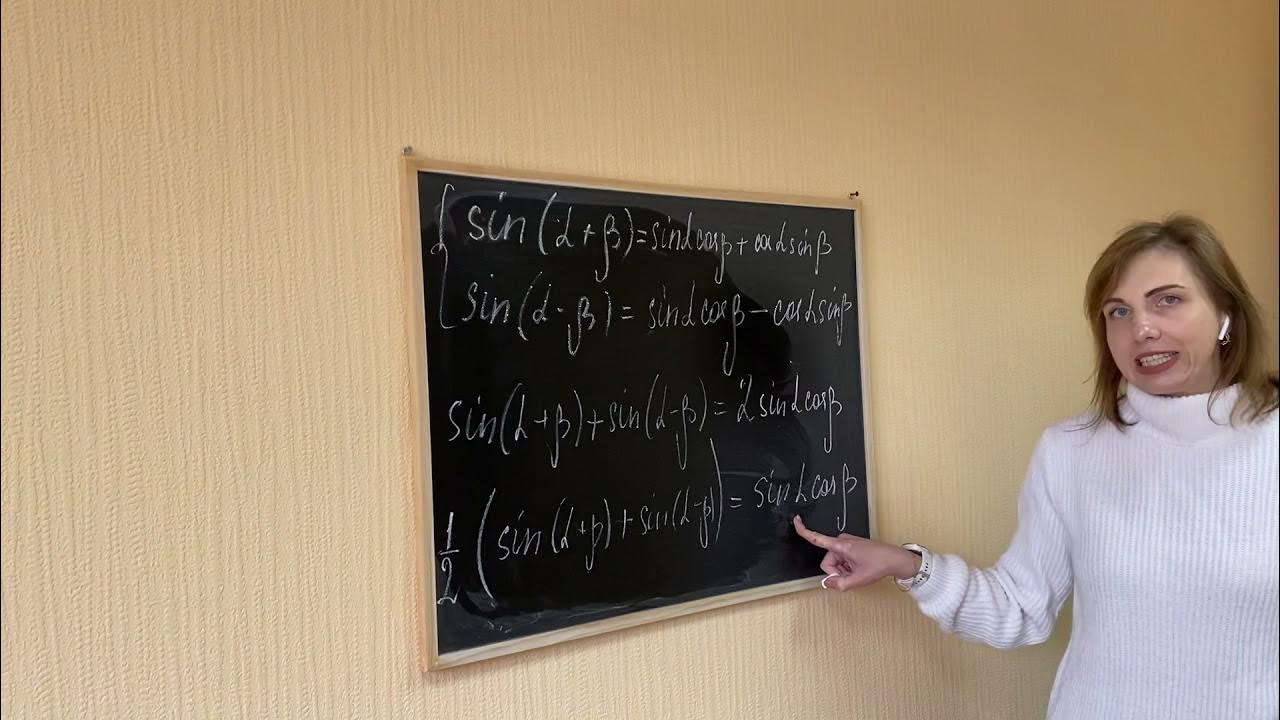 { sin(α+β)=sinαcosβ+cosαsinβ
sin(α-β)=sinαcosβ-cosαsinβ
sin(α+β)+sin(α-β)=2sinαcosβ
1/2(sin(α+β)+sin(α-β))=sinαcosβ